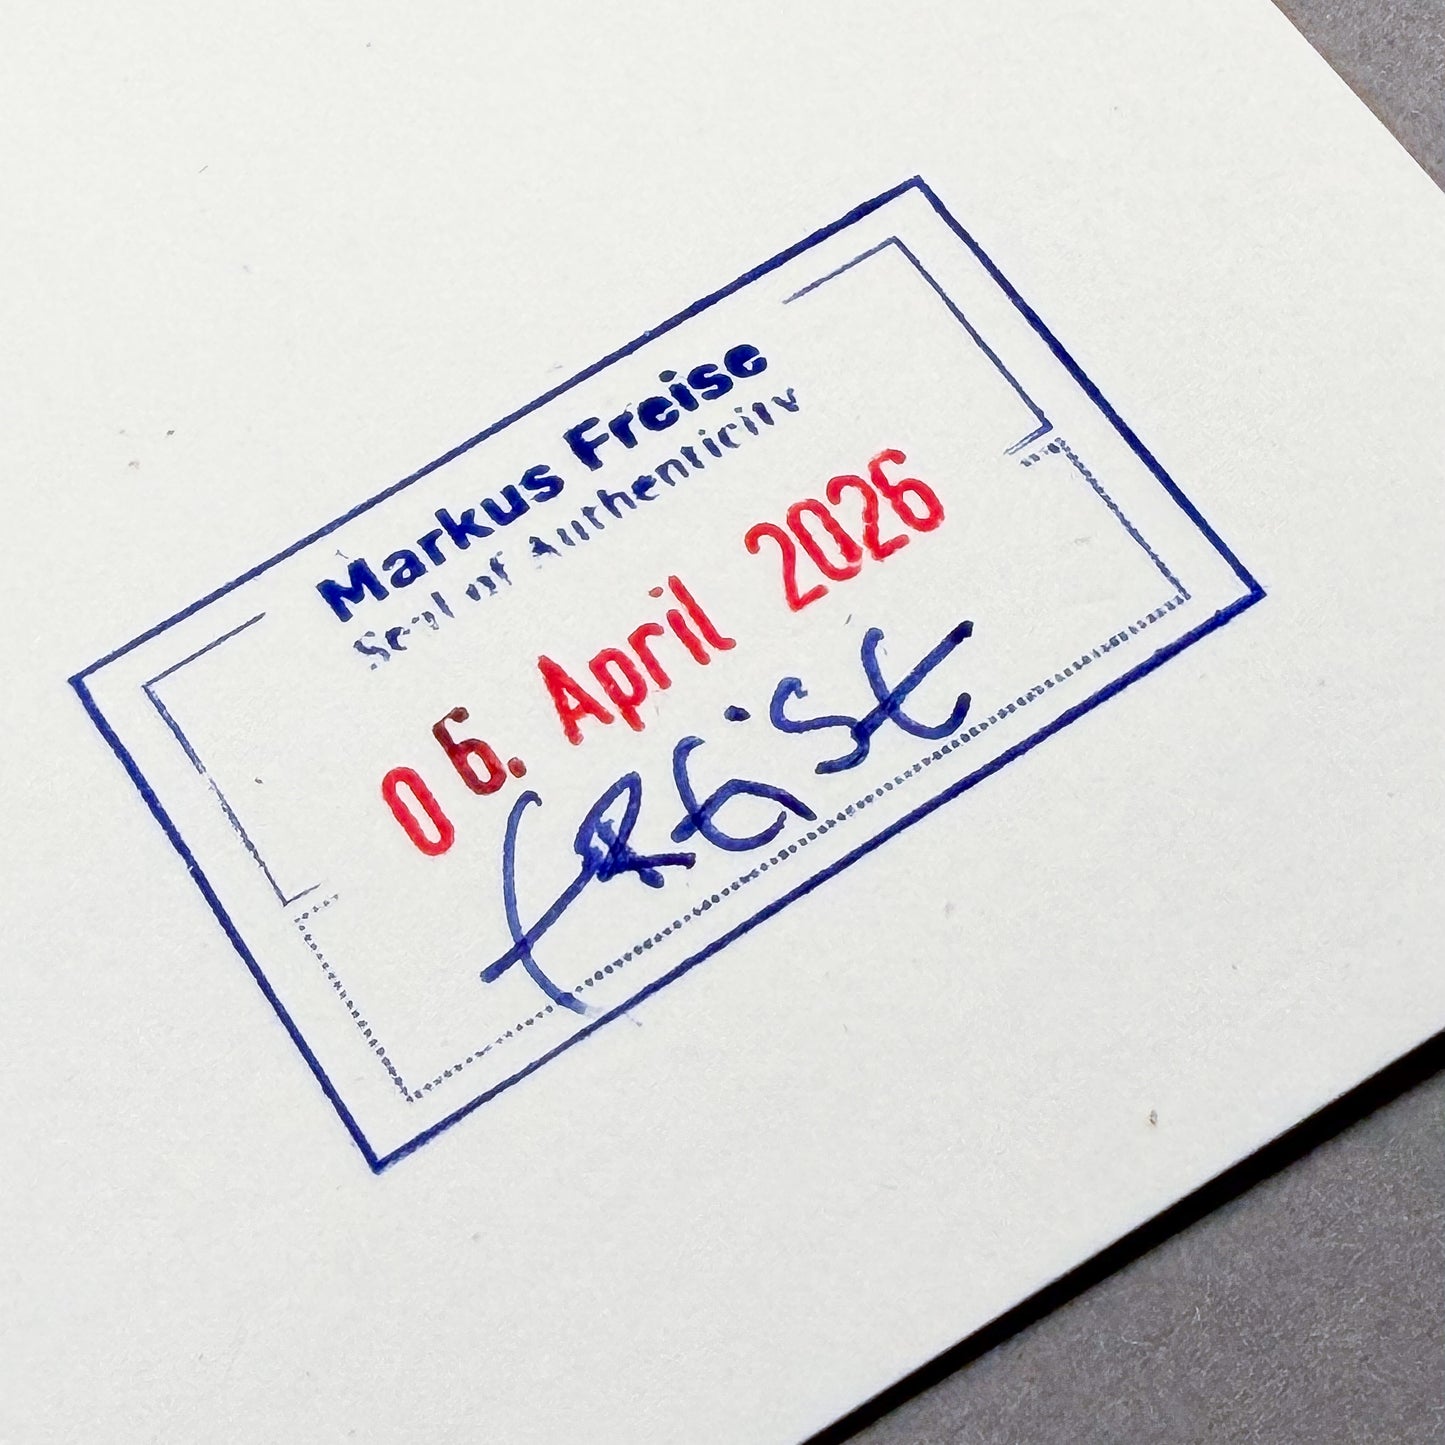 Markus Freise
Seal of Authenticity
06. April 2026